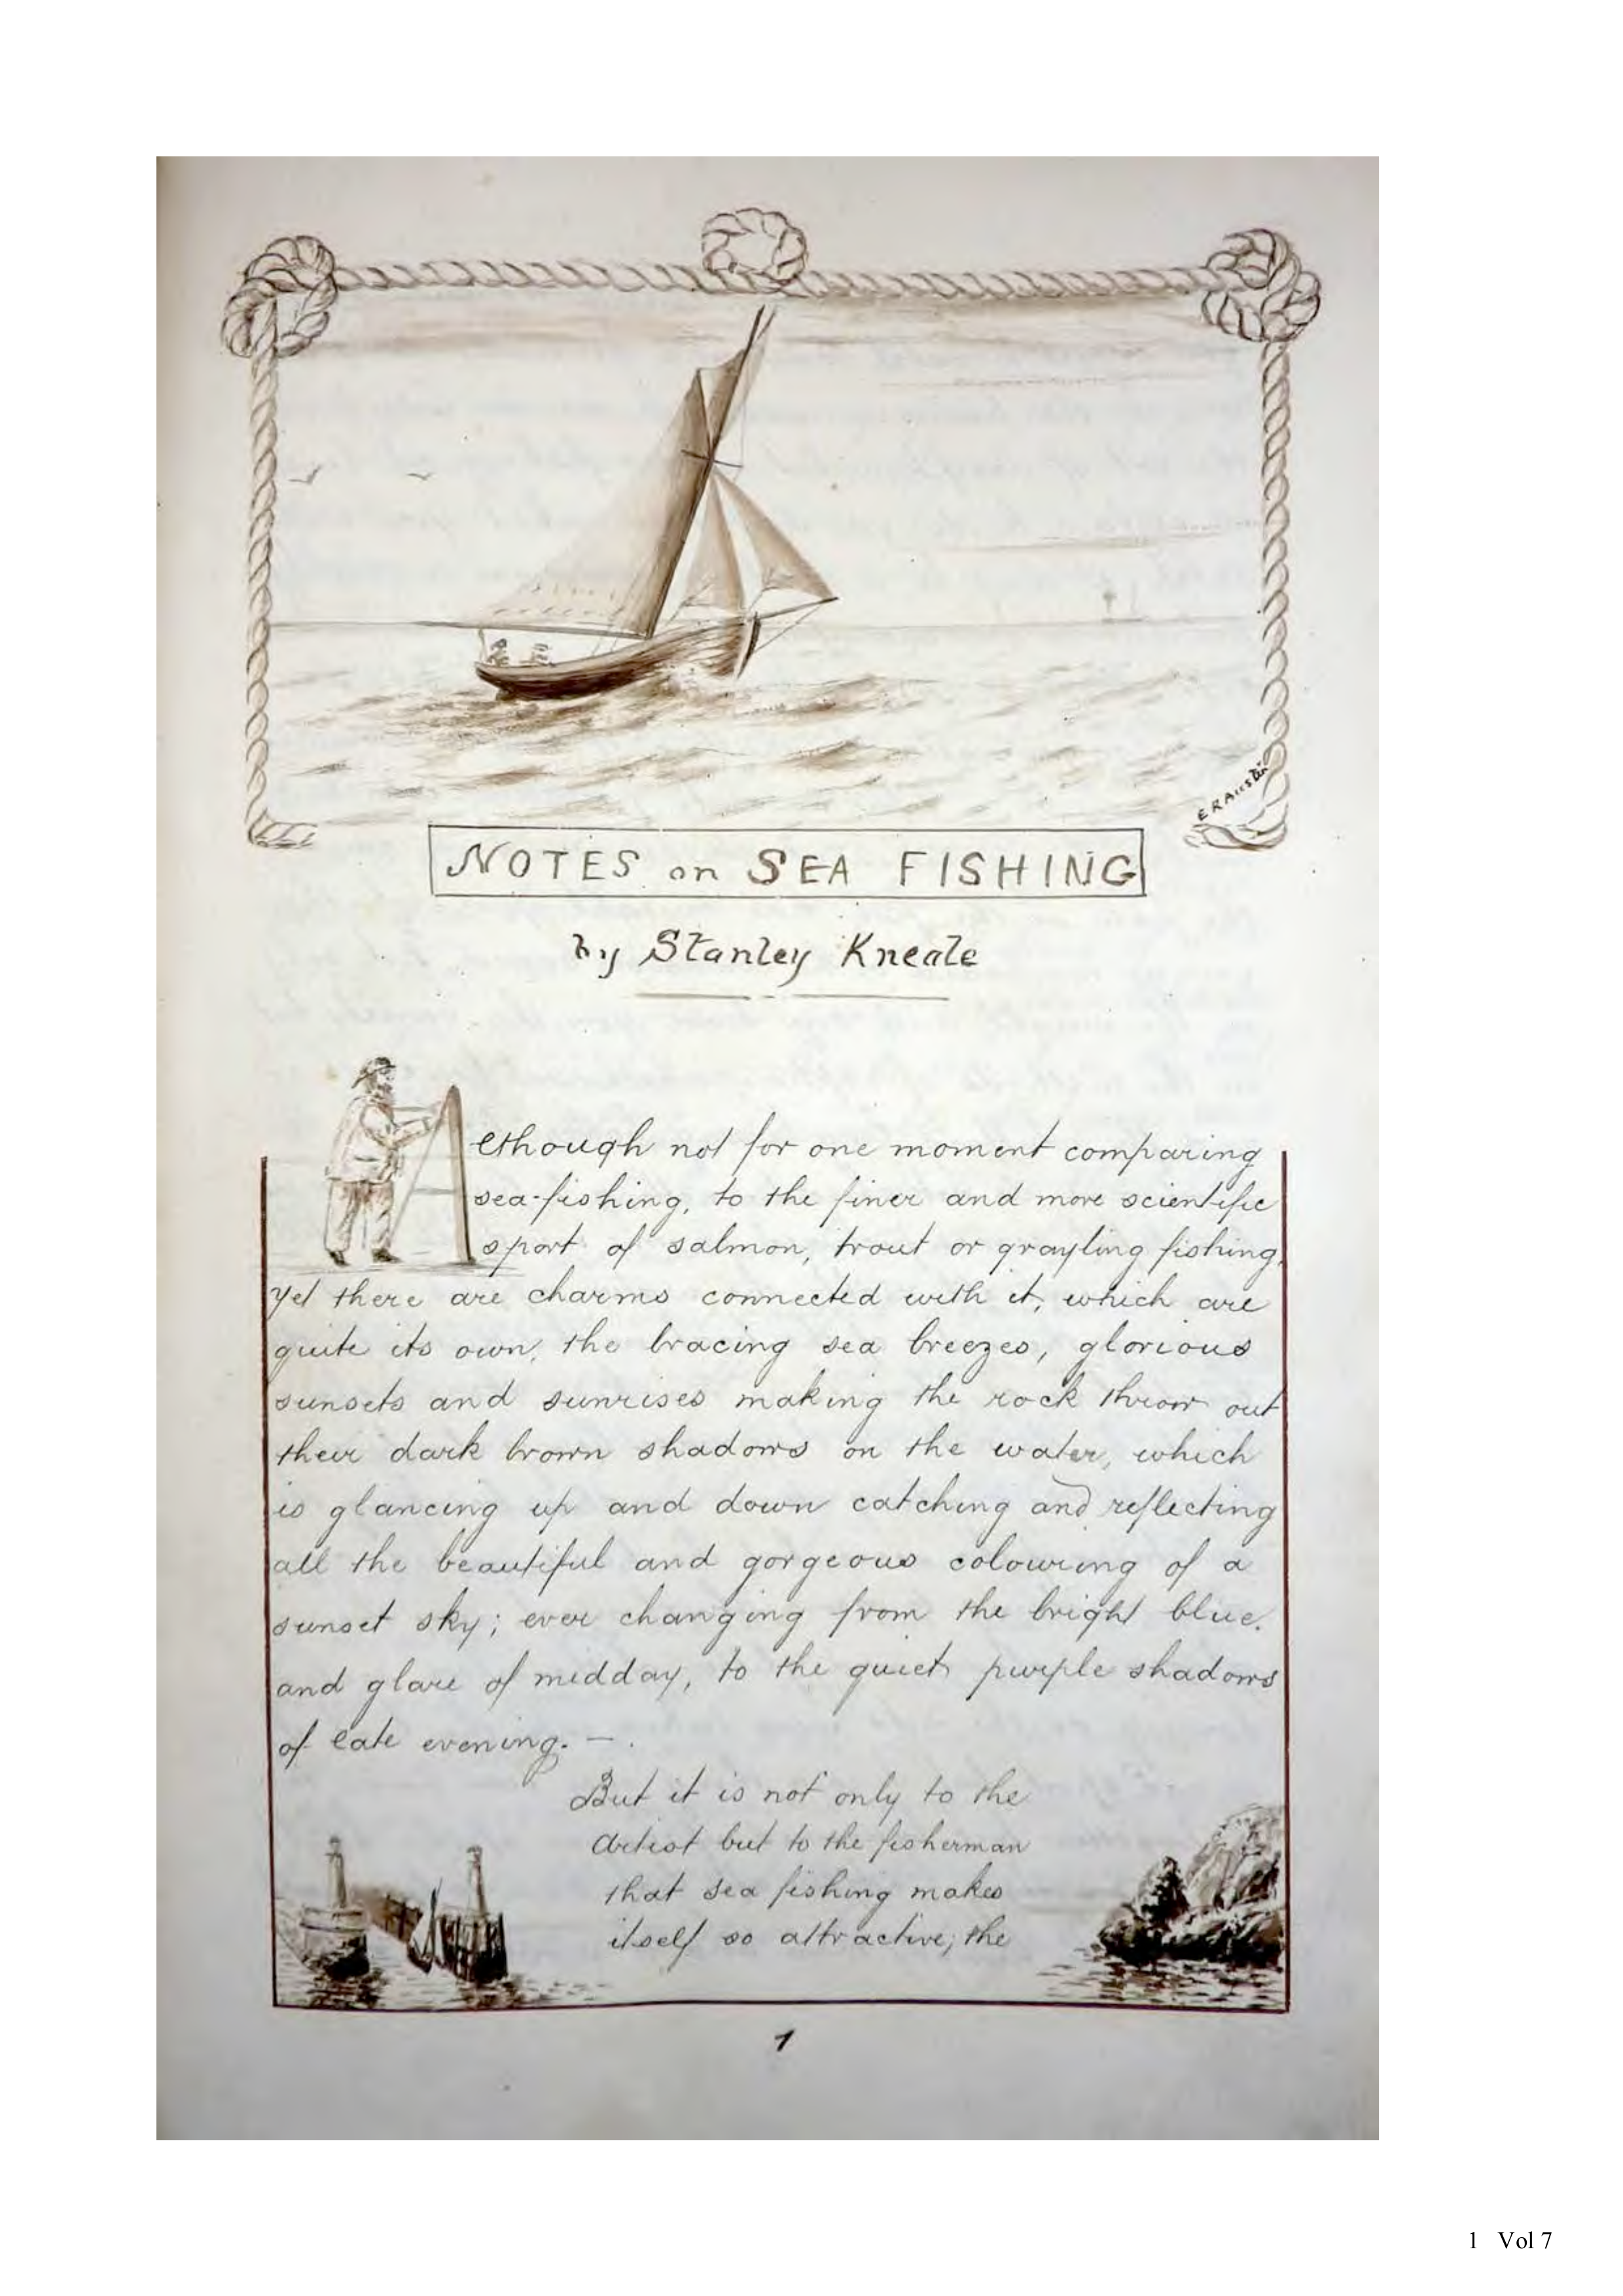 E R Austin
NOTES on SEA FISHING
by Stanley Kneale
Although not for one moment comparing
sea-fishing, to the finer and more scientific
sport of salmon, trout or grayling fishing,
yet there are charms connected with it, which are
quite its own, the bracing sea breezes, glorious
sunsets and sunrises making the rock throw out
their dark brown shadows on the water, which
is glancing up and down catching and reflecting
all the beautiful and gorgeous colouring of a
sunset sky; ever changing from the bright blue.
and glare of midday, to the quiet purple shadows
of late evening. — .
But it is not only to the
Artist but to the fisherman
that sea fishing makes
itself so attractive; the
1
1 Vol 7